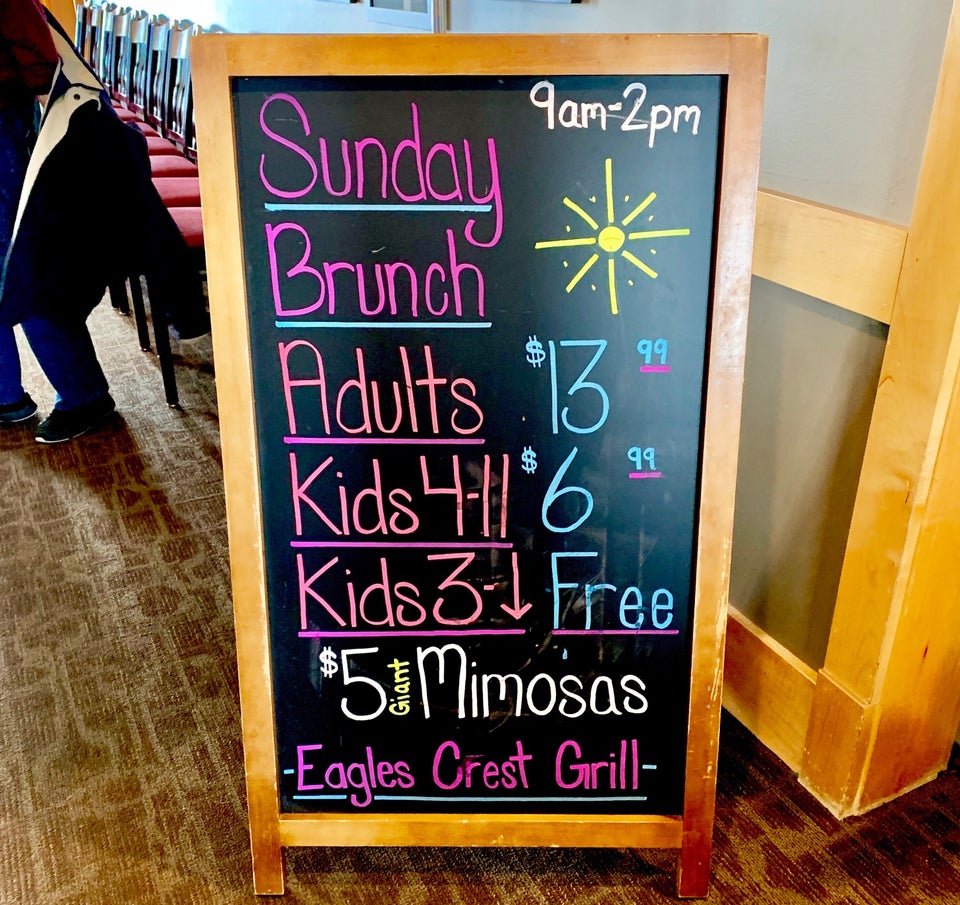 9am-2pm
Sunday
Brunch
Adults $13 99
Kids 4-11 $6 99
Kids 3-↓ Free
$5 Giant Mimosas
-Eagles Crest Grill-